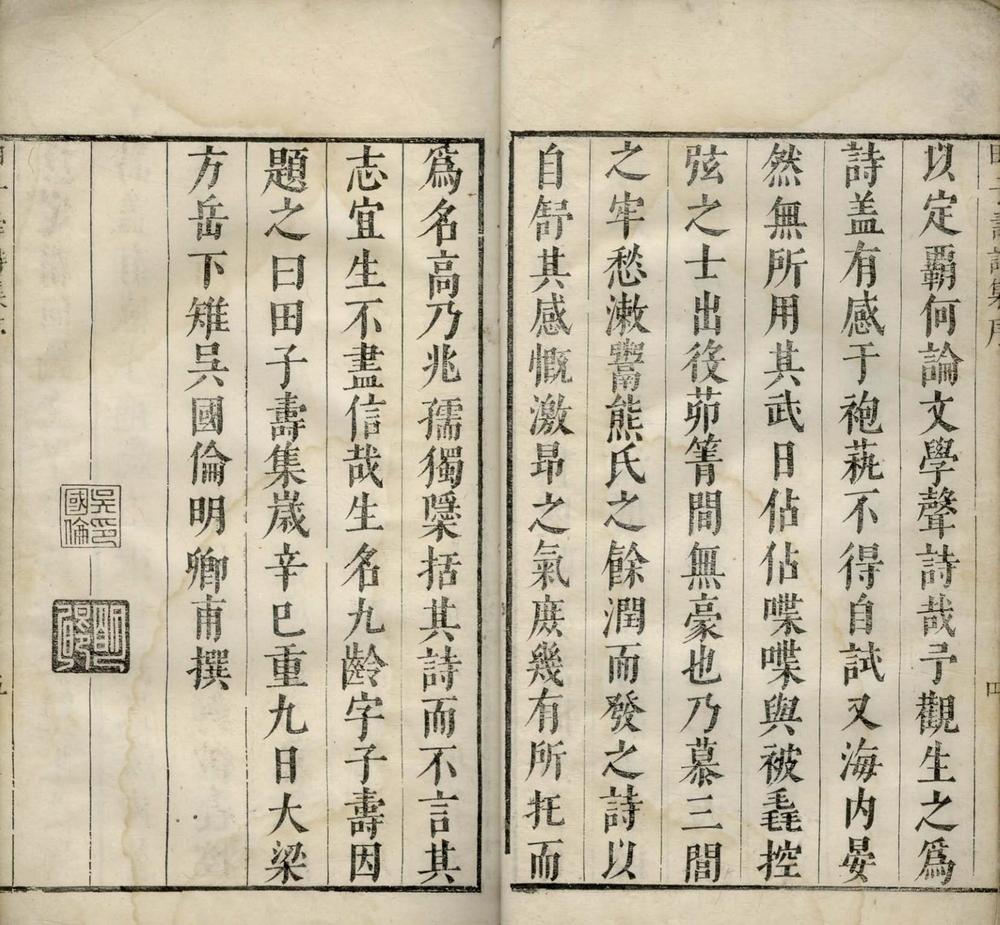 以定覇何論文學聲詩哉予觀生之爲
詩盖有感于袍蓺不得自試又海内晏
然無所用其武日佔佔喋喋與被毳控
弦之士出役茆箐間無豪也乃慕三閭
之牢愁漱鬻熊氏之餘潤而發之詩以
自舒其感慨激昂之氣庶幾有所托而
爲名高乃兆孺獨櫽括其詩而不言其
志宜生不盡信哉生名九齡字子壽因
題之曰田子壽集歲辛巳重九日大梁
方岳下雉吳國倫明卿甫撰
吳國倫印